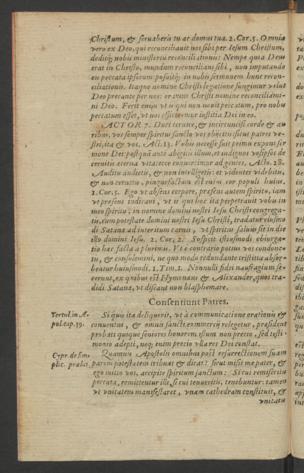 Christum, & salvaberis tu ac domus tua. 2. Cor. 5. Omnia
vero ex Deo, qui reconciliavit nos sibi per Iesum Christum,
deditq; nobis ministerium reconciliationis: Nempe quia Deus
erat in Christo, mundum reconcilians sibi, non imputando
eis peccata ipsorum posuitq; in nobis sermonem hunc recon-
ciliationis. Itaque nomine Christi legatione fungimur velut
Deo precante per nos: oramus Christi nomine reconciliami-
ni Deo. Fecit enim ut is qui non novit peccatum, pro nobis
peccatum esset, ut nos efficeremur iustitia Dei in eo.
ACTOR. 7. Duri cervice, & incircumcisi corde & au
ribus, vos semper spiritui sancto
stri, ita & vos. Act. 13. Vobis necesse fuit primum exponi ser
monem Dei postquam
cernitis aeterna vita: ecce convertimur ad gentes. Acto. 28.
Auditu audietis, & non intelligetis: et videntes videbitis,
& non cernetis, enim cor populi huius.
1. Cor. 5. Ego ut absens corpore, praesens autem spiritu, iam
ut praesens iudicavi, ut is qui hoc ita perpetravit vobis in
meo spiritu: in nomine domini nostri Iesu Christi congrega-
tis, cum potestate domini nostri Iesu Christi, tradatur eiusmo
di Satanae ad interitum carnis, ut spiritus salvus sit in die
illo domini Iesu. 2. Cor. 2. Sufficit istiusmodi, obiurga-
tio haec facta a pluribus. Ut e contrario potius vos condone-
tis, & consolemini, ne quo modo redundante tristitia absor-
beatur huiusmodi. 1. Tim. 1. Nonnulli fidei naufragium fe-
cerunt, ex quibus est Hymenaeus & Alexander, quos tra-
didi Satanae, ut discant non blasphemare.
Consentiunt Patres.
Tertul. in A-
pol. cap. 39.
Si quis ita deliquerit, ut a communicatione orationis &
conventus, & omnis sancti commercij relegetur, president
probati quique seniores honorem, istum non precio, sed testi-
monio adepti, neq; enim precio ulla res Dei constat.
Cypr. de sim-
plic. praelat.
Quamvis Apostolis omnibus post resurrectionem suam
parem potestatem tribuat & dicat: sicut misit me pater, &
ego mitto vos, accipite spiritum sanctum: Si cui remiseritis
peccata, remittentur illi, si cui tenueritis, tenebuntur: tamen
ut unitatem manifestaret, unam cathedram constituit, &
unitatis